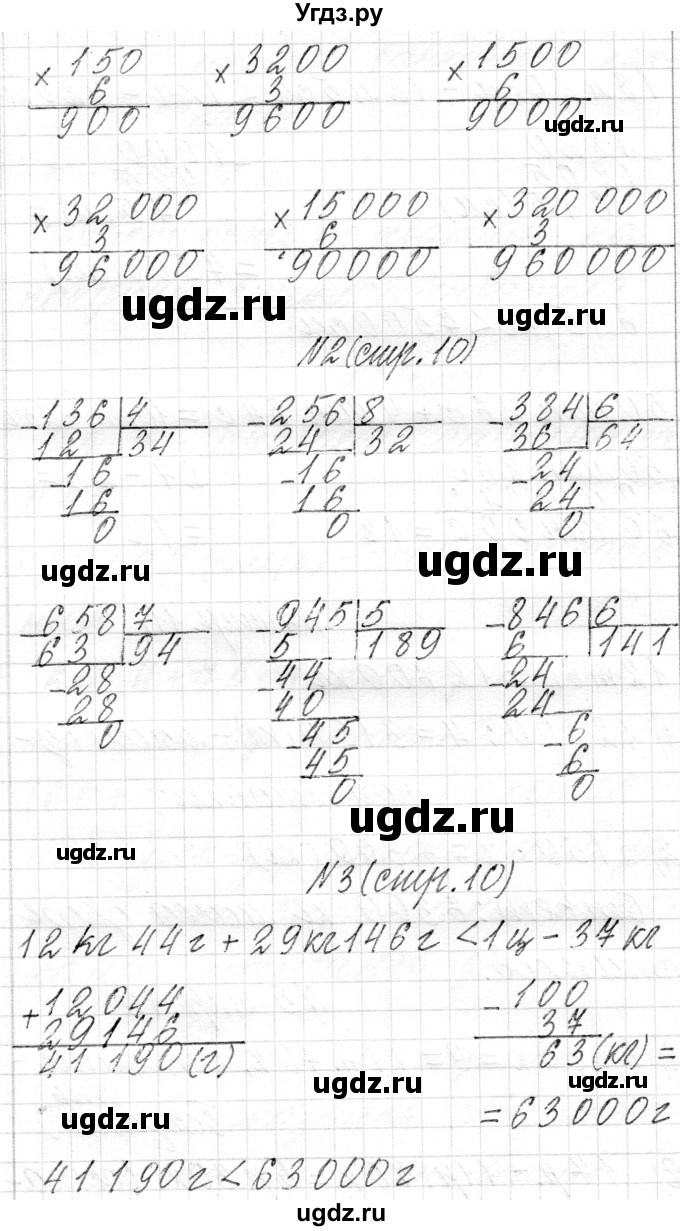 Угдз.ру
× 150 × 3200 × 1500
6 3 6
900 9600 9000
ugdz.ru
× 32 000 × 15000 × 320 000
3 6 3
96000 90000 960000
ugdz.ru ugdz.ru
№2 (стр. 10)
- 136 | 4 - 256 | 8 - 384 | 6
12 34 24 32 36 64
- 16 - 16 - 24
16 16 24
0 0 0
ugdz.ru ugdz.ru
- 658 | 7 - 945 | 5 - 846 | 6
63 94 5 189 6 141
- 28 - 44 - 24
28 40 24
0 - 45 - 6
45 6
0 0
ugdz.ru ugdz.ru
№3 (стр. 10)
12 кг 44 г + 29 кг 146 г < 1 ц - 37 кг
+ 12 044 - 100
29146 37
41 190 (г) 63 (кг) =
ugdz.ru ugdz.ru
ugdz.ru = 63000 г
41 190 г < 63 000 г
ugdz.ru